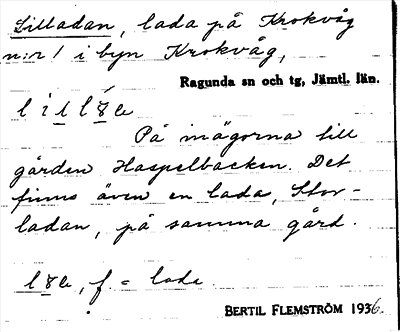 Lilladan, lada på Krokvåg
n:r 1 i byn Krokvåg,
Ragunda sn och tg, Jämtl. län.
På inägorna till
gården Haspelbacken. Det
finns även en lada, Stor-
ladan, på samma gård.
f = lada.
BERTIL FLEMSTRÖM 1936.